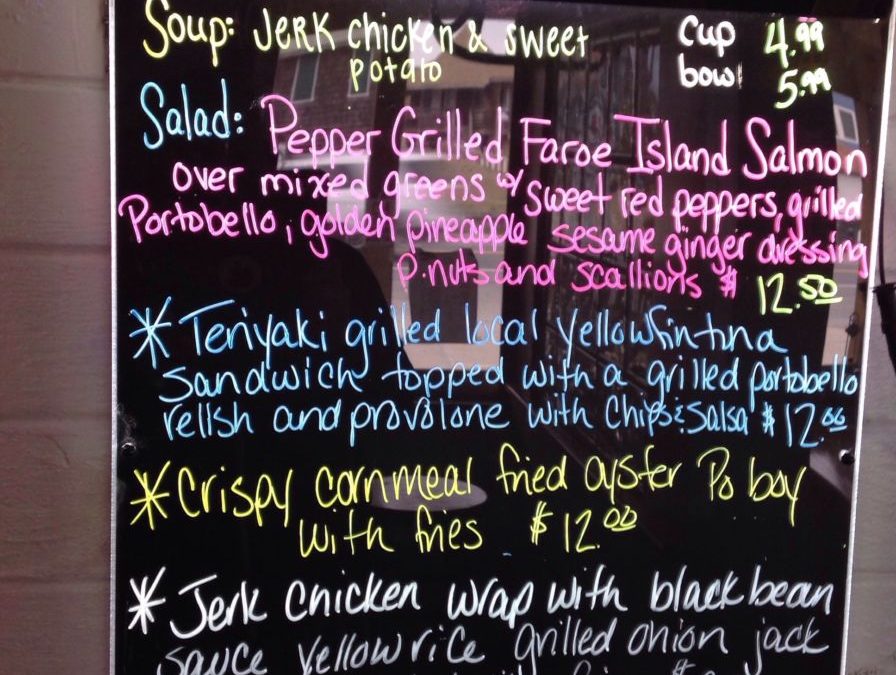 Soup: Jerk chicken & sweet potato
cup 4.99
bowl 5.99
Salad: Pepper Grilled Faroe Island Salmon
over mixed greens w/ sweet red peppers, grilled
Portobello, golden pineapple sesame ginger dressing
p.nuts and scallions $ 12.50
* Teriyaki grilled local yellowfin tuna
sandwich topped with a grilled portobello
relish and provolone with Chips & Salsa $ 12.00
* Crispy cornmeal fried oyster Po boy
with fries $ 12.00
* Jerk chicken wrap with black bean
sauce yellow rice grilled onion jack